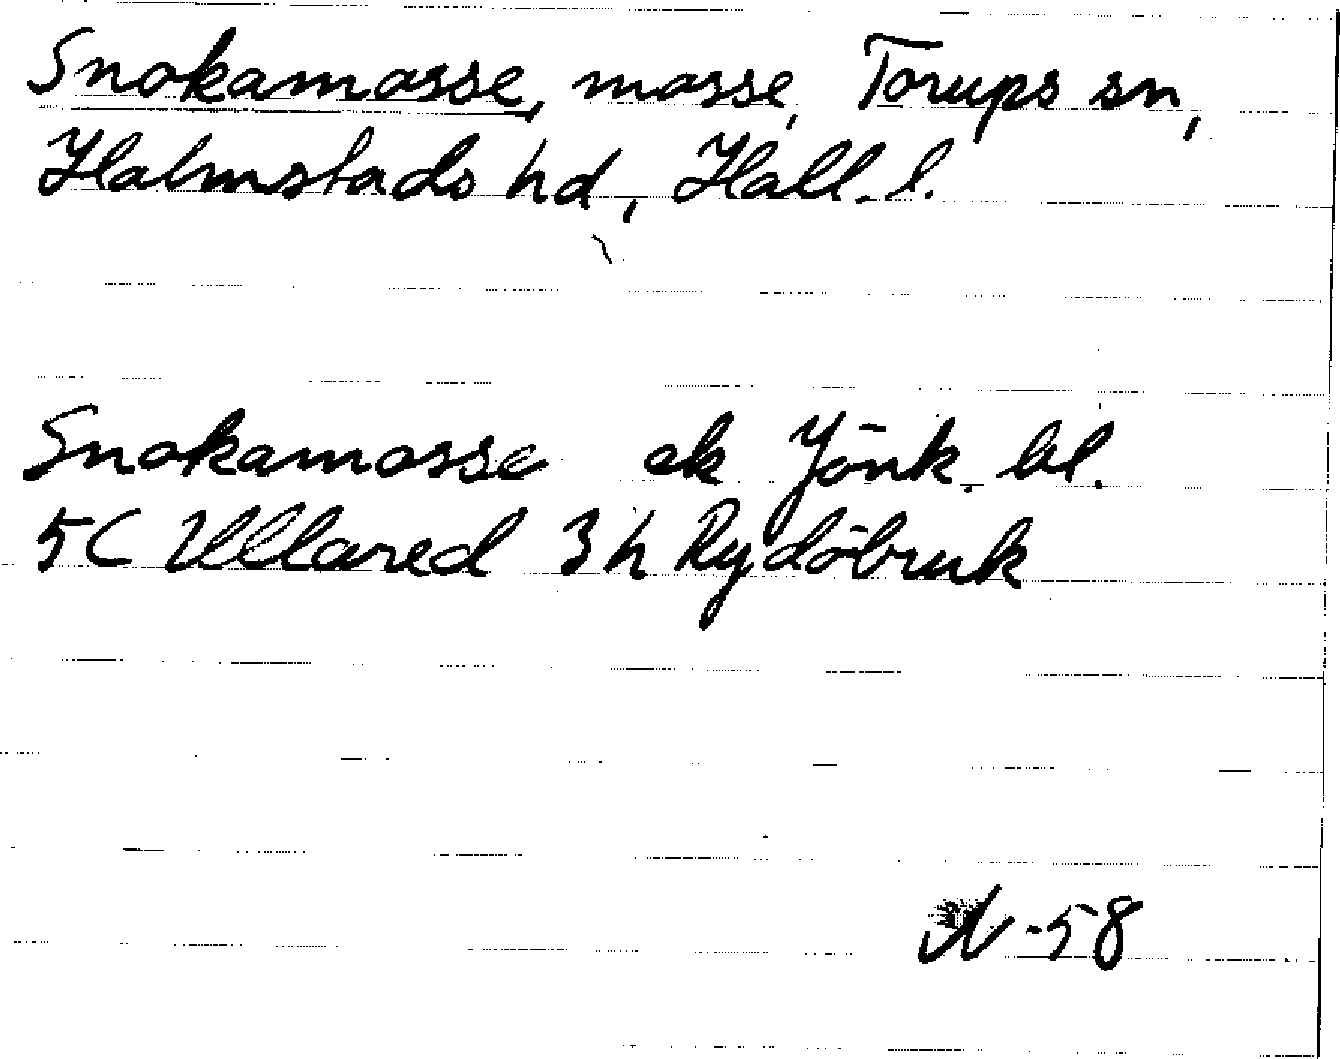 Snokamosse, mosse, Torups sn,
Halmstads hd, Hall. l.
Snokamosse ek Jönk. bl.
5C Ullared 3h Rydöbruk
N-58